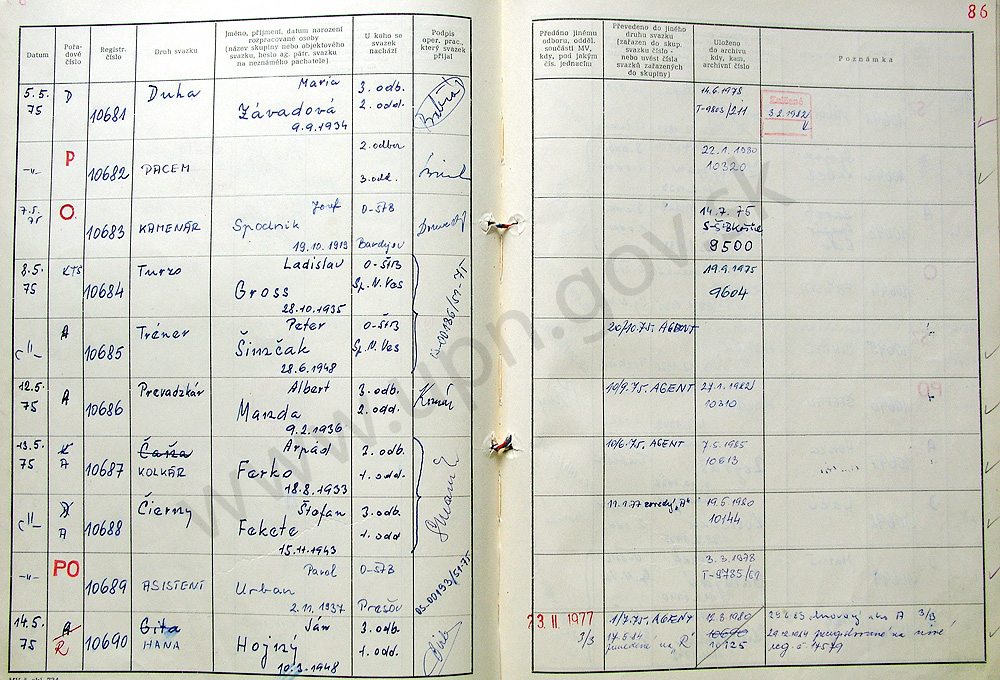 86
Datum
Pořadové číslo
Registr. číslo
Druh svazku
Jméno, příjmení, datum narození rozpracované osoby (název skupiny nebo objektového svazku, heslo ag. pátr. svazku na neznámého pachatele)
U koho se svazek nachází
Podpis oper. prac., který svazek přijal
Předáno jinému odboru, odděl. součásti MV, kdy, pod jakým čís. jednacím
Převedeno do jiného druhu svazku (zařazen do skup. svazku číslo - nebo uvést čísla svazků zařazených do skupiny)
Uloženo do archivu kdy, kam, archivní číslo
Poznámka
5.5. 75 D 10681 Duha Maria 3. odb.
Závadová 2. odd.
9.9.1934
14.6.1978
T-9803/211
3.2.1982
-"- P 10682 PACEM 2. odbor
3. odd.
22.1.1980
10320
7.5. 75 O. 10683 KAMENÁR Jozef O-ŠTB
Spodník
19.10.1919 Bardejov
14.7.75
9500
8.5. 75 KTS 10684 Turzo Ladislav O-ŠTB
Gross Sp. N. Ves
28.10.1935
19.9.1975
9604
-"- A 10685 Tréner Peter O-ŠTB
Šimčak Sp. N. Ves
28.6.1948
20/10.75. AGENT
12.5. 75 A 10686 Prevadzkár Albert 3. odb.
Manda 2. odd.
9.2.1936
10/9.75. AGENT
27.1.1982
10310
13.5. 75 A 10687 KOLKÁR Arpád 2. odb.
Ferko 1. odd.
18.8.1933
10/6.75. AGENT
7.5.1985
10613
-"- A 10688 Čierny Štefan 3. odb.
Fekete 1. odd
15.11.1943
19.5.1980
10144
-"- PO 10689 ASISTENT Pavol O-ŠTB
Urban
2.11.1937 Prešov
3.3.1978
14.5. 75 A R 10690 Gita HANA Ján 3. odb.
Hojný 1. odd.
10.3.1948
23. II. 1977
3/3
1/7.75. AGENT
"R"
www.upn.gov.sk